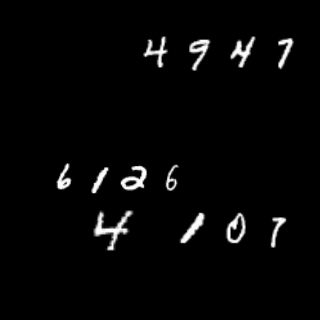 4 9 4 7
6 1 2 6
4 1 0 7